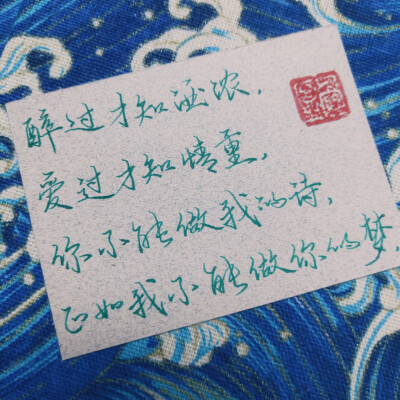 醉过才知酒浓，
爱过才知情重，
你不能做我的诗，
正如我不能做你的梦。